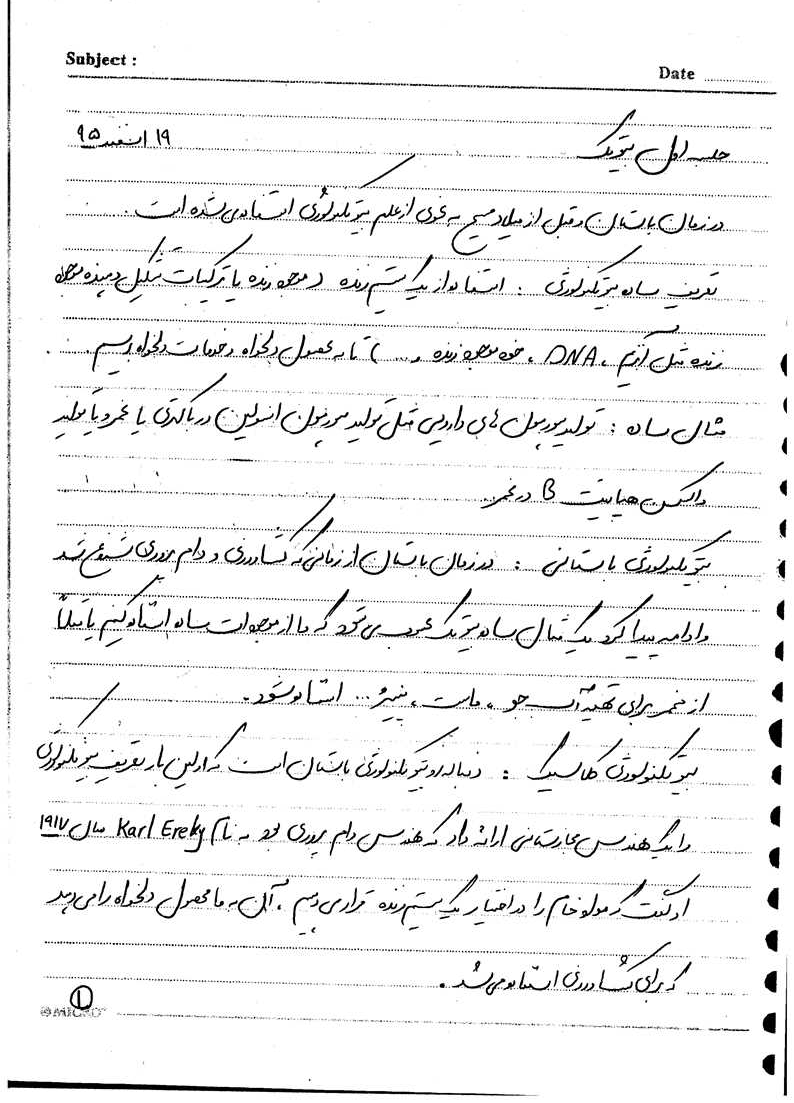 Subject :
Date
۱۹ اسفند ۹۵
جلسه اول بیوتک
در زمان باستان و قبل از میلاد مسیح به نحوی از علم بیوتکنولوژی استفاده می‌شده است.
تعریف ساده بیوتکنولوژی : استفاده از یک سیستم زنده ( موجود زنده یا ترکیبات تشکیل دهنده موجود
زنده مثل آنزیم ، DNA ، خود موجود زنده و ... ) تا به محصول دلخواه و خدمات دلخواه برسیم.
مثال ساده : تولید هورمون های دارویی مثل تولید هورمون انسولین در باکتری یا مخمر و یا تولید
واکسن هپاتیت B در مخمر.
بیوتکنولوژی باستانی : در زمان باستان از زمانی که کشاورزی و دام پروری شروع شد
و ادامه پیدا کرد یک مثال ساده بیوتک محسوب می شود که ما از موجودات ساده استفاده کنیم یا مثلاً
از مخمر برای تهیه آب جو ، ماست ، پنیر و ... استفاده شود.
بیوتکنولوژی کلاسیک : دنباله رو بیوتکنولوژی باستان است که اولین بار تعریف بیوتکنولوژی
را یک مهندس مجارستانی ارائه داد که مهندس دام پروری بود به نام Karl Ereky سال ۱۹۱۷
او گفت که مواد خام را در اختیار یک سیستم زنده قرار می دهیم ، آن به ما محصول دلخواه را می دهد
که برای کشاورزی استفاده می شد.
۱
MICRO